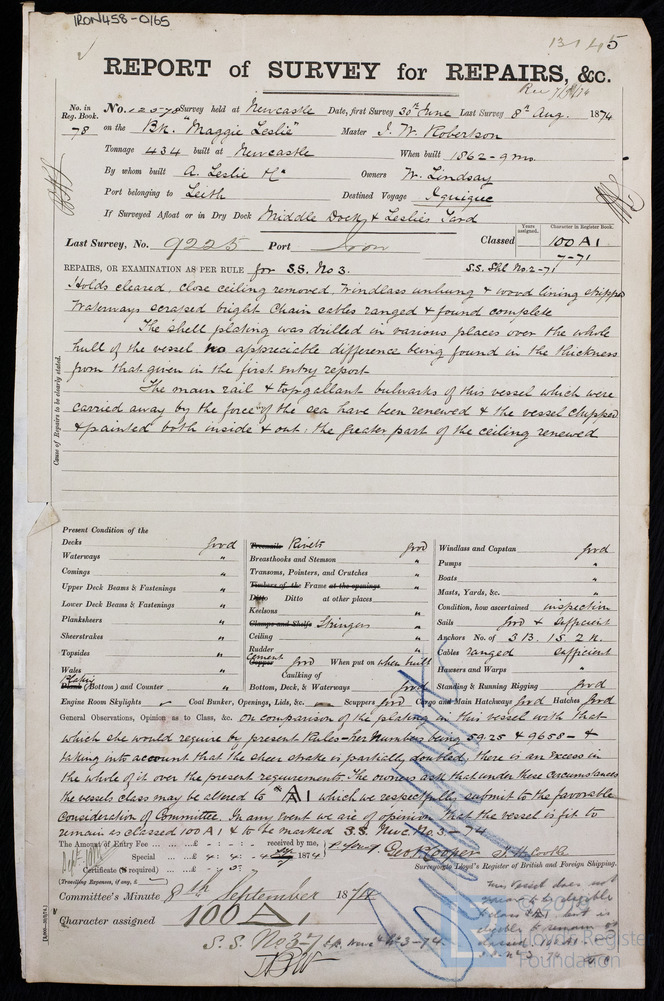 IRON458-0165
REPORT of SURVEY for REPAIRS, &c.
No. in Reg. Book. No. 125-78 Survey held at Newcastle Date, first Survey 30th June Last Survey 8th Aug. 1874
78 on the Bk. "Maggie Leslie" Master J. W. Robertson
Tonnage 434 built at Newcastle When built 1862-9 mo
By whom built A. Leslie & Co Owners W. Lindsay
Port belonging to Leith Destined Voyage Iquique
If Surveyed Afloat or in Dry Dock Middle Dock & Leslies Yard
Last Survey, No. 9225 Port Iron Classed Years assigned. Character in Register Book. 100 A 1
7-71
REPAIRS, OR EXAMINATION AS PER RULE for S.S. No 3. S.S. Shl No.2-71
Holds cleared, close ceiling removed, windlass unhung & wood lining stripped
Waterways scraped bright Chain cables ranged & found complete
The shell plating was drilled in various places over the whole
hull of the vessel no appreciable difference being found in the thickness
from that given in the first entry report
The main rail & topgallant bulwarks of this vessel which were
carried away by the force of the sea have been renewed & the vessel chipped
& painted both inside & out; the greater part of the ceiling renewed
Cause of Repairs to be clearly stated.
Present Condition of the
Decks good
Waterways "
Comings "
Upper Deck Beams & Fastenings "
Lower Deck Beams & Fastenings "
Planksheers "
Sheerstrakes "
Topsides "
Wales "
Plating Plank (Bottom) and Counter "
Treenails Rivets good
Breasthooks and Stemson "
Transoms, Pointers, and Crutches "
Timbers of the Frame at the openings "
Ditto Ditto at other places "
Keelsons "
Clamps and Shelfs Stringers "
Ceiling "
Rudder "
Cement Copper good When put on when built
Caulking of
Bottom, Deck, & Waterways good
Windlass and Capstan good
Pumps "
Boats "
Masts, Yards, &c. "
Condition, how ascertained inspection
Sails good & sufficient
Anchors No. of 3 B. 1 S. 2 K.
Cables ranged sufficient
Hawsers and Warps "
Standing & Running Rigging good
Engine Room Skylights Coal Bunker, Openings, Lids, &c. Scuppers good Cargo and Main Hatchways good Hatches good
General Observations, Opinion as to Class, &c. On comparison of the plating in this vessel with that
which she would require by present Rules - her Numbers being 5925 & 9658 - &
taking into account that the sheer strake is partially doubled, there is an excess in
the whole of it over the present requirements. The owners ask that under these circumstances
the vessels class may be altered to A 1 which we respectfully submit to the favorable
Consideration of Committee. In any event we are of opinion that the vessel is fit to
remain as classed 100 A1 & to be marked S.S. Nwc. No 3-74
The Amount of Entry Fee ... £ : : received by me,
Special ... £ 4 : 4 : 1874
Certificate (if required) ... £
(Travelling Expenses, if any, £ )
Geo Cooper J. H. Cooke
Surveyors to Lloyd's Register of British and Foreign Shipping.
Committee's Minute 8th September 1874
Character assigned 100 A
S.S. No 3-7
This Vessel does not
eligible
& class but is
eligible to remain as
classed 100 A1
© 2020
Lloyd's Register
Foundation